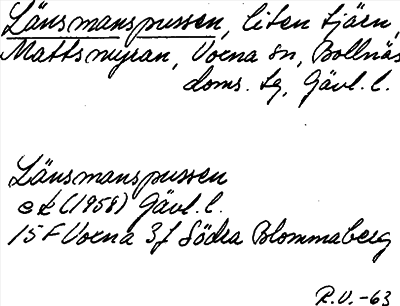 Länsmanspussen, liten tjärn,
Mattsmyran, Voxna sn, Bollnäs
doms. tg, Gävl. l.
Länsmanspussen
ek (1958) Gävl. l.
15 F Voxna 3 f Södra Blommaberg
R.V. -63